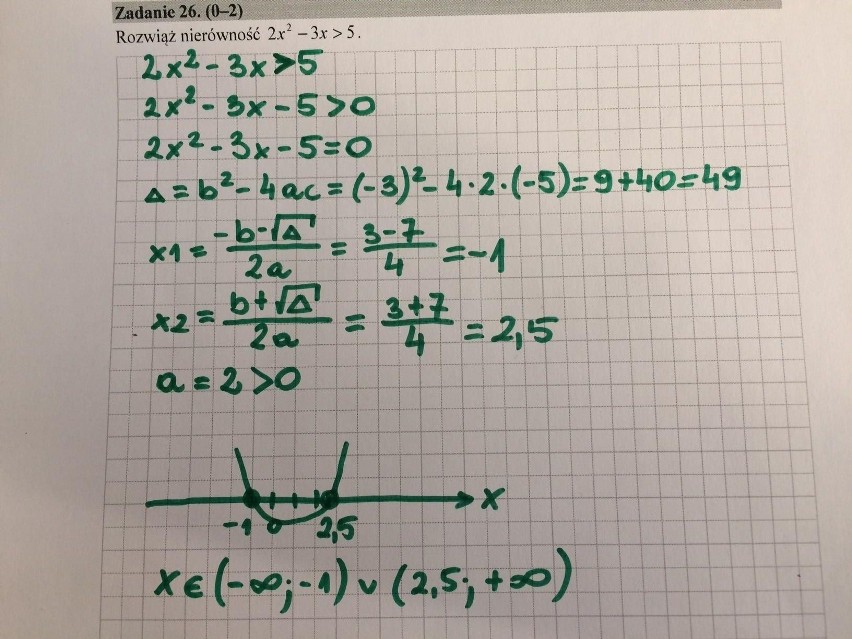 Zadanie 26. (0–2)
Rozwiąż nierówność 2x² – 3x > 5.
2x² - 3x > 5
2x² - 3x - 5 > 0
2x² - 3x - 5 = 0
Δ = b² - 4ac = (-3)² - 4·2·(-5) = 9 + 40 = 49
x1 = (-b-√Δ)/(2a) = (3-7)/4 = -1
x2 = (b+√Δ)/(2a) = (3+7)/4 = 2,5
a = 2 > 0
x
-1 0 2,5
x ∈ (-∞; -1) ∨ (2,5; +∞)